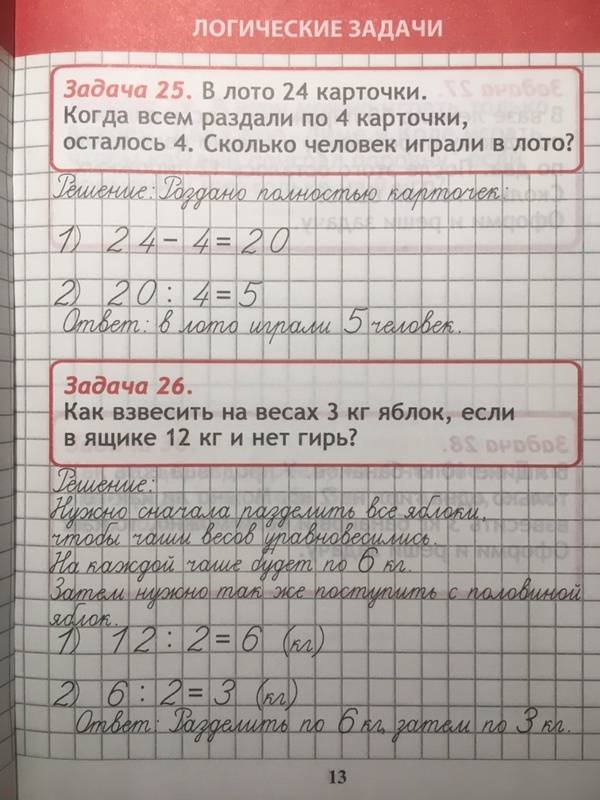 ЛОГИЧЕСКИЕ ЗАДАЧИ
Задача 25. В лото 24 карточки.
Когда всем раздали по 4 карточки,
осталось 4. Сколько человек играли в лото?
Решение: Роздано полностью карточек:
1) 24 - 4 = 20
2) 20 : 4 = 5
Ответ: в лото играли 5 человек.
Задача 26.
Как взвесить на весах 3 кг яблок, если
в ящике 12 кг и нет гирь?
Решение:
Нужно сначала разделить все яблоки,
чтобы чаши весов уравновесились.
На каждой чаше будет по 6 кг.
Затем нужно так же поступить с половиной
яблок.
1) 12 : 2 = 6 (кг)
2) 6 : 2 = 3 (кг)
Ответ: Разделить по 6 кг, затем по 3 кг.
13